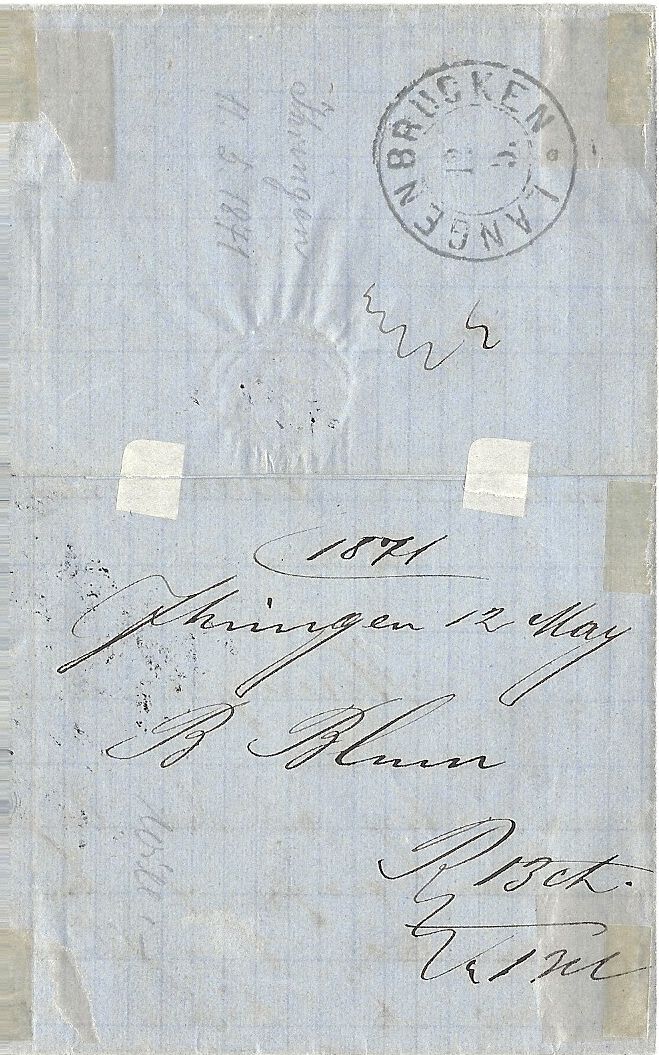 LANGENBRUCKEN
12
Ihringen
11. 5. 1871
1871
Ihringen 12 May
B Blum
R 13 ct.